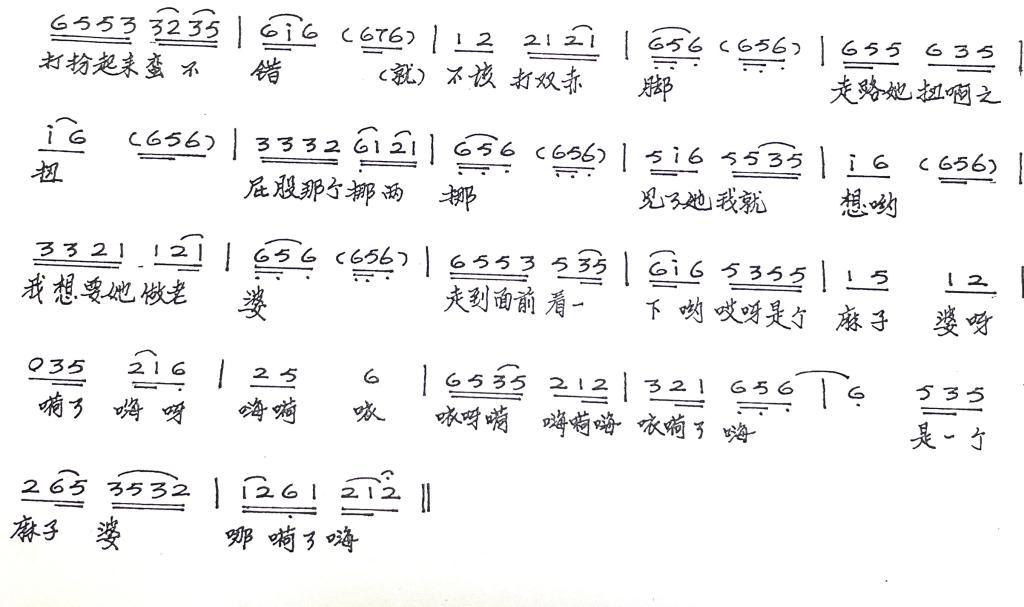 6553 3235 | 6i6 (676) | 12 2121 | 656 (656) | 655 635 |
打扮起来蛮不 错 (就) 不该 打双赤 脚 走路她扭啊之
i6 (656) | 3332 6121 | 656 (656) | 5i6 5535 | i6 (656) |
扭 屁股那个挪两 挪 见了她我就 想哟
3321 121 | 656 (656) | 6553 535 | 6i6 5355 | 15 12 |
我想要她做老 婆 走到面前看一 下哟哎呀是个 麻子 婆呀
035 216 | 25 6 | 6535 212 | 321 656 | 6 535
嗬了 嗨呀 嗨嗬 咴 咴呀嗬 嗨嗬嗨 咴嗬了 嗨 是一个
265 3532 | i261 212 ‖
麻子 婆 哪嗬了嗨